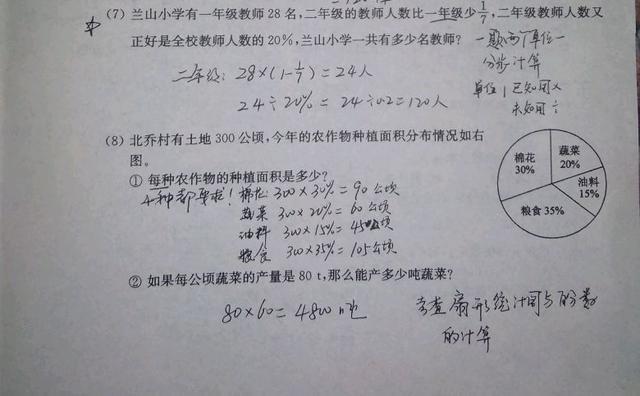 (7) 兰山小学有一年级教师28名,二年级的教师人数比一年级少1/7,二年级教师人数又
正好是全校教师人数的20%,兰山小学一共有多少名教师?
一题两个单位一
分步计算
单位1已知用×
未知用÷
二年级: 28×(1-1/7)=24人
24÷20%=24÷0.2=120人
(8) 北乔村有土地300公顷,今年的农作物种植面积分布情况如右
图。
① 每种农作物的种植面积是多少?
4种都要求! 棉花 300×30%=90公顷
蔬菜 300×20%=60公顷
油料 300×15%=45公顷
粮食 300×35%=105公顷
棉花
30%
蔬菜
20%
油料
15%
粮食35%
② 如果每公顷蔬菜的产量是80 t,那么能产多少吨蔬菜?
80×60=4800吨
考查扇形统计图与百分数
的计算